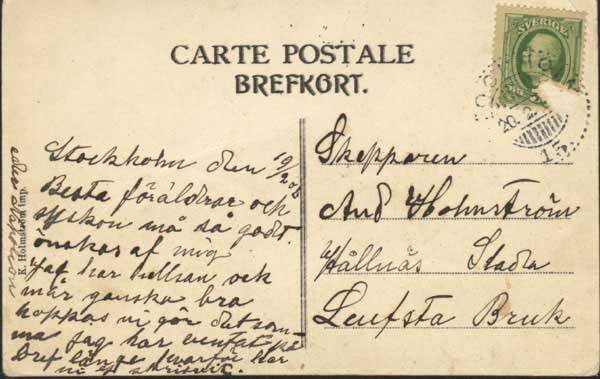 CARTE POSTALE
BREFKORT.
SVERIGE
20. 2
15
Stockholm den 19/2 06
Bästa föräldrar och
syskon må så godt
önskas af mig
Jag har hälsan ock
mår ganska bra
hoppas ni gör det som-
ma jag har väntat på
Bref länge hvarför har
ni ej skrifvit.
K. Holmström imp.
Skepparen
And Holmström
Hållnäs Stada
Leufsta Bruk